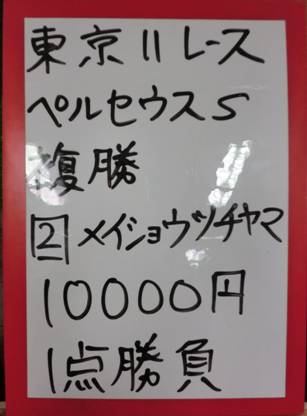 東京11レース
ペルセウスS
複勝
2 メイショウツチヤマ
10000円
1点勝負